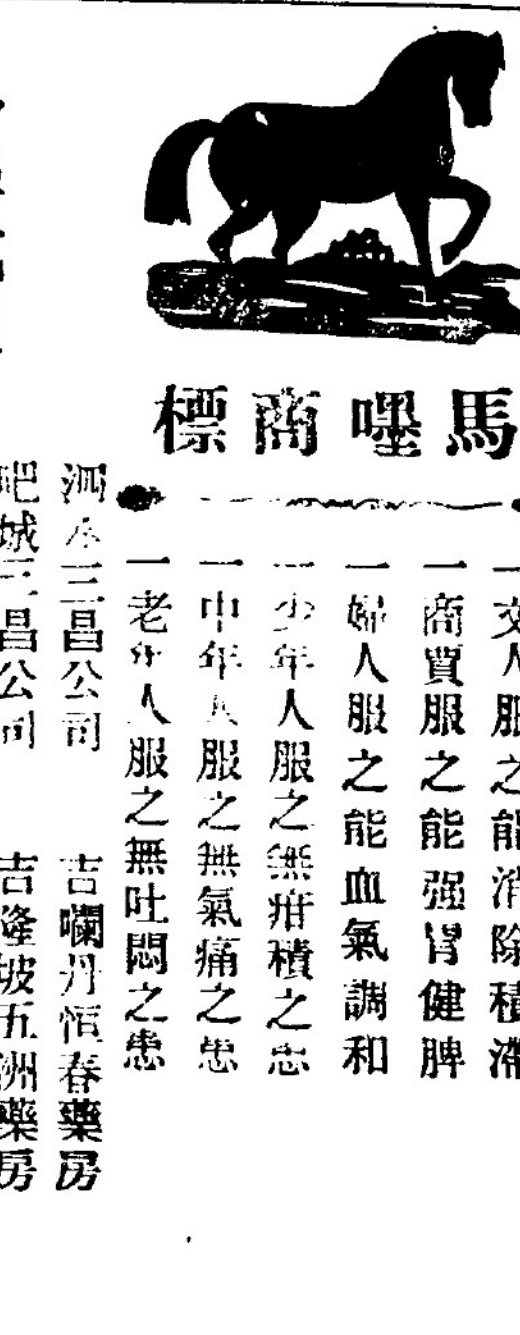 馬嘜商標
一文人服之能消除積滯
一商賈服之能强胃健脾
一婦人服之能血氣調和
一少年人服之無疳積之患
一中年人服之無氣痛之患
一老年人服之無吐悶之患
泗水三昌公司 吉囒丹恒春藥房
吧城三昌公司 吉隆坡五洲藥房